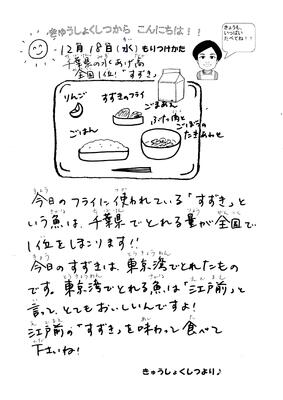 きゅうしょくしつから こんにちは!!
きょうも、
いっぱい
たべてね!!
12月18日(水) もりつけかた
千葉県の水あげ高
全国1位!「すずき」
りんご
すずきのフライ
ごまあえ
ごはん
ぶた肉と
ごぼうの
たきあわせ
今日のフライに使われている「すずき」と
いう魚は、千葉県でとれる量が全国で
1位をほこります!!
今日のすずきは、東京湾でとれたもの
です。東京湾でとれる魚は「江戸前」と
言って、とてもおいしいんですよ!
江戸前の「すずき」を味わって食べて
下さいね!
きゅうしょくしつより♪